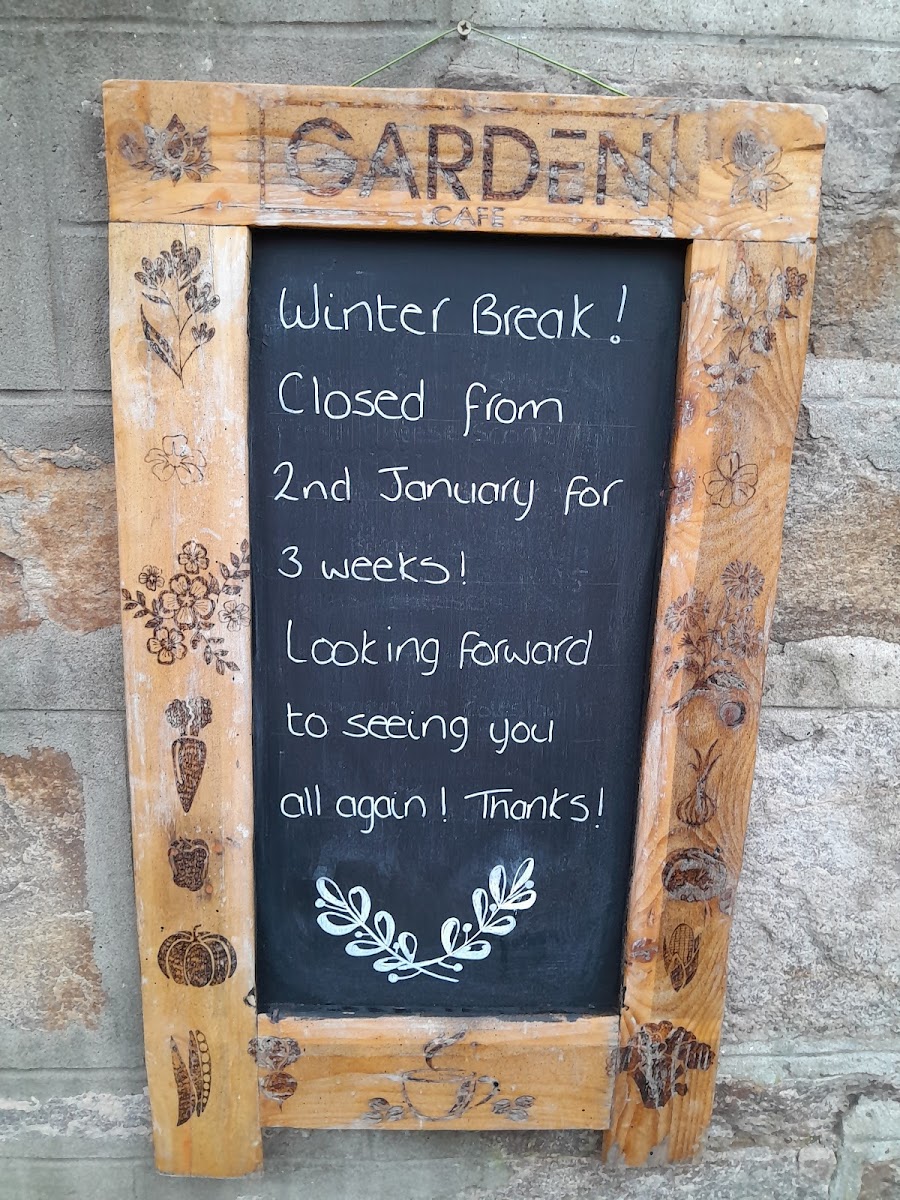 GARDEN
CAFE
Winter Break!
Closed from
2nd January for
3 weeks!
Looking forward
to seeing you
all again! Thanks!